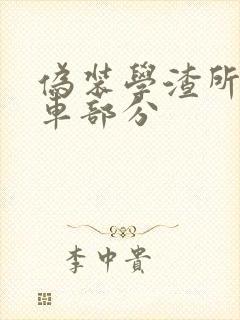 偽裝學渣所
車部分
李中貴